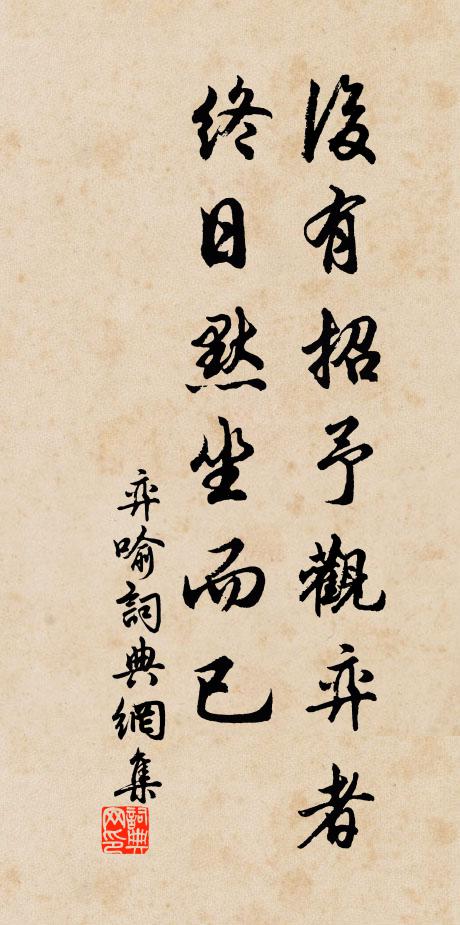 後有招予觀弈者
終日默坐而已
弈喻詞典網集
詞典
网印